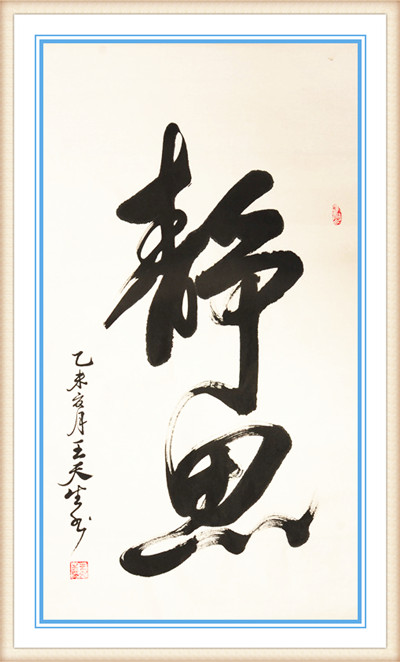 静思
乙未亥月王天生书